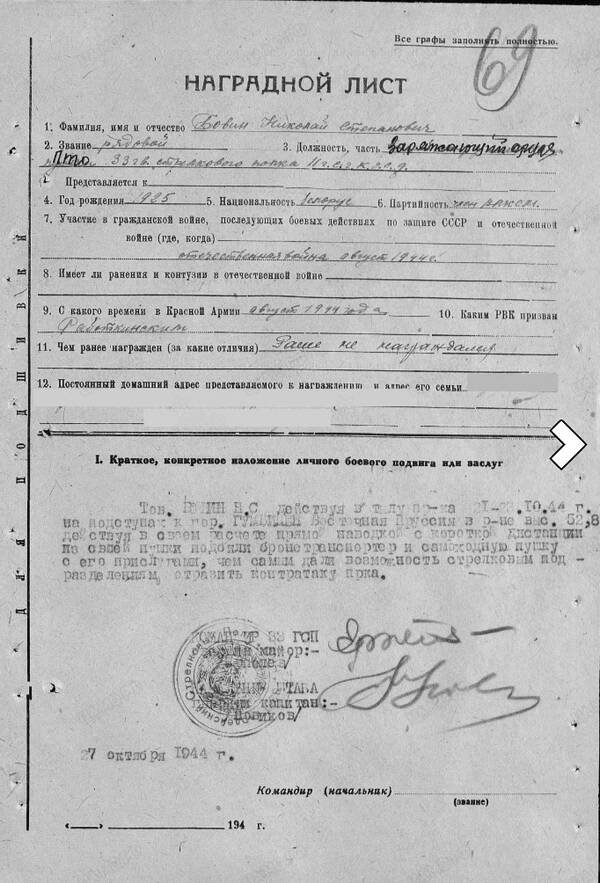 Все графы заполнять полностью.
69
НАГРАДНОЙ ЛИСТ
1. Фамилия, имя и отчество Бовин Николай Степанович
2. Звание рядовой 3. Должность, часть заряжающий орудя
ПТО 33 гв. стрелкового полка 11 гв.
Представляется к
4. Год рождения 1925 5. Национальность белорус 6. Партийность
7. Участие в гражданской войне, последующих боевых действиях по защите СССР и отечественной
войне (где, когда)
отечественная война август 1944 г.
8. Имеет ли ранения и контузии в отечественной войне
9. С какого времени в Красной Армии август 1944 года 10. Каким РВК призван
11. Чем ранее награжден (за какие отличия) Ранее не награждался
12. Постоянный домашний адрес представляемого к награждению и адрес его семьи
I. Краткое, конкретное изложение личного боевого подвига или заслуг
Тов. Н.С. действуя в тылу пр-ка 21-23.10.44 г.
на подступах к гор. Восточная Пруссия в р-не выс. 52,8
действуя в своем расчете прямо наводкой с короткой дистанции
из своей пушки подбили бронетранспортер и самоходную пушку
с его прислугами, чем самым дали возможность стрелковым под-
разделениям отразить контратаку прка.
КОМАНДИР 33 ГСП
майор:-
ШТАБА
капитан:-
Новиков/
27 октября 1944 г.
Командир (начальник)
(звание)
„ “ 194 г.